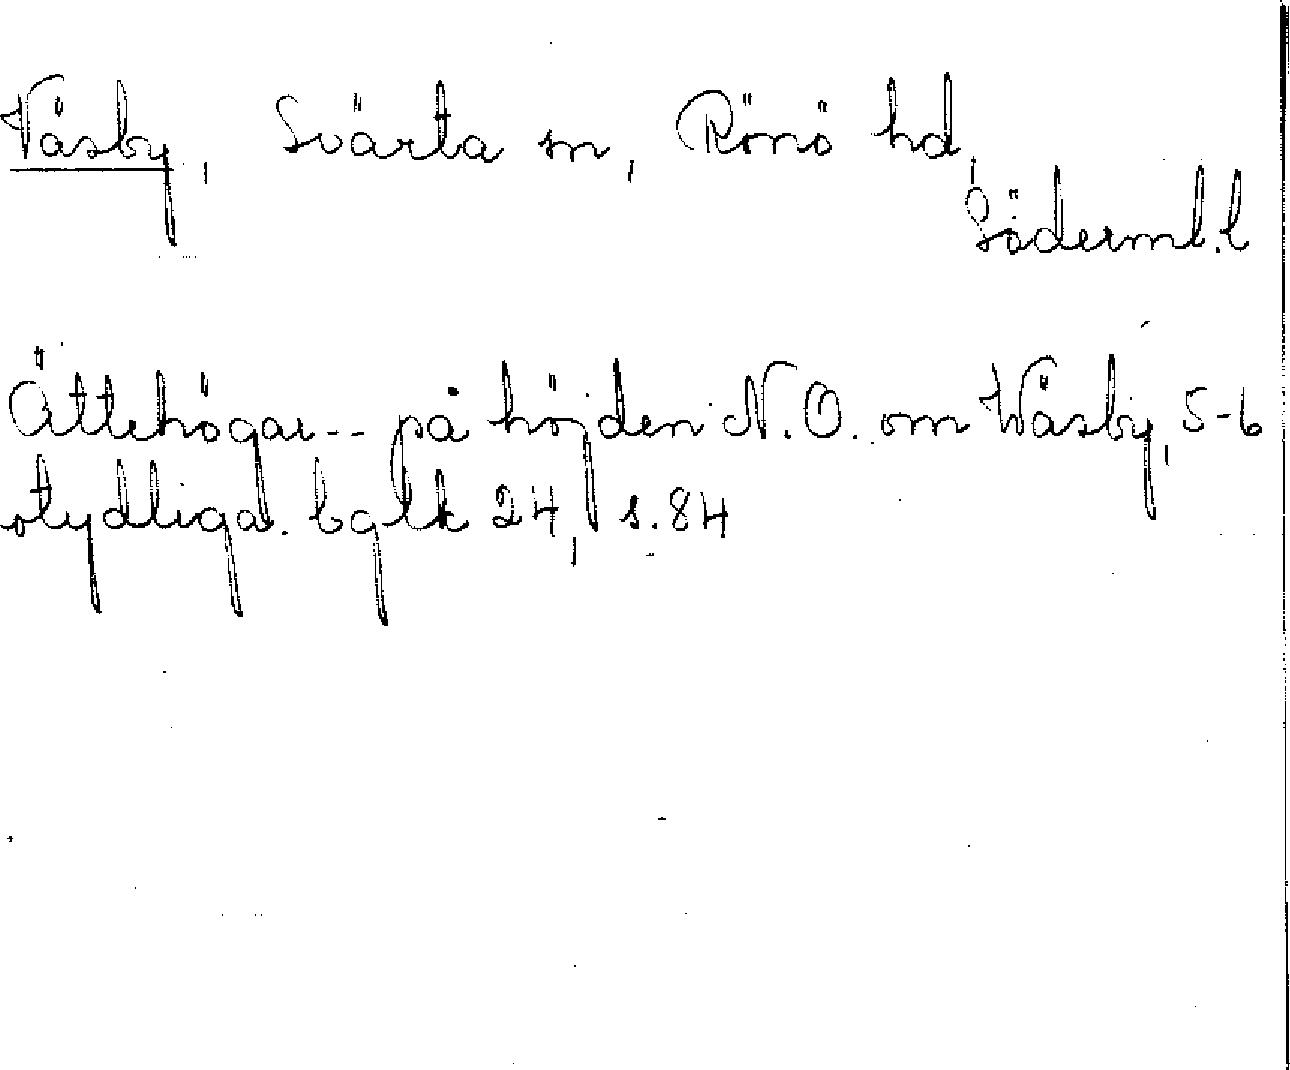 Väsby, Svärta sn, Rönö hd,
Söderml.l
Ättehögar-- på höjden N.O. om Wäsby, 5-6
otydliga. bglk 24, s.84